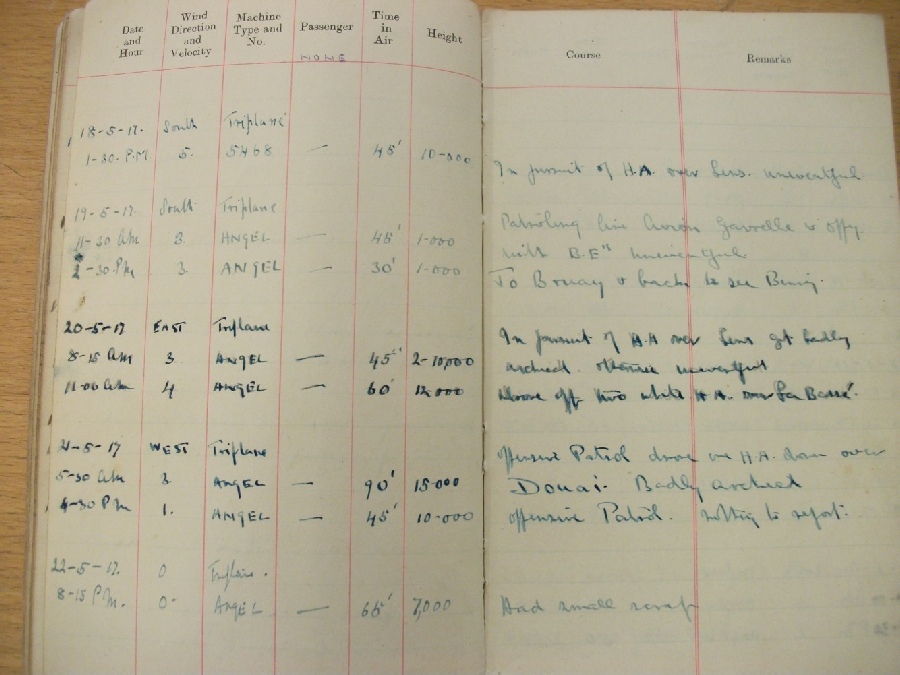 Date and Hour Wind Direction and Velocity Machine Type and No. Passenger Time in Air Height Course Remarks
NONE
18-5-17. South Triplane
1-30. P.M 5. 5468 — 45' 10-000
In pursuit of H.A. over Lens. uneventful
19-5-17 South Triplane
11-30 AM 3. ANGEL — 45' 1-000 Patrolling line
with B.E's uneventful
2-30. PM 3. ANGEL — 30' 1-000
To Bruay & back to see
20-5-17 EAST Triplane
In pursuit of H.A over Lens got badly
8-15 AM 3. ANGEL — 45' 2-10,000
archied. otherwise uneventful
11-00 AM 4 ANGEL — 60' 12,000
Drove off two white H.A. over
21-5-17 WEST Triplane
offensive Patrol drove one H.A. down over
5-30 AM 3. ANGEL — 90' 15-000
Douai. Badly archied
4-30 PM 1. ANGEL — 45' 10-000
offensive Patrol. nothing to report.
22-5-17. 0 Triplane.
8-15 P.M. 0 ANGEL — 65' 7,000
Had small scrap